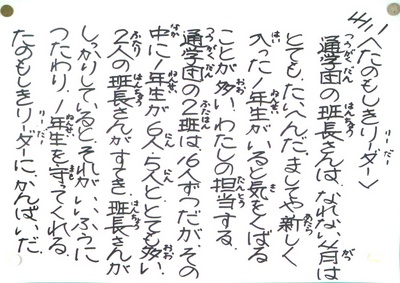 4/11〈たのもしきリーダー〉
通学団の班長さんは、なれない4月は
とても、たいへんだ。ましてや新しく
入った1年生がいると気をくばる
ことが多い。わたしの担当する、
通学団の2班は、16人ずつだが、その
中に1年生が6人、5人と、とても多い。
2人の班長さんがすてき。班長さんが
しっかりしているとそれがいいふうに
つたわり、1年生を守ってくれる。
たのもしきリーダーに、かんぱいだ。